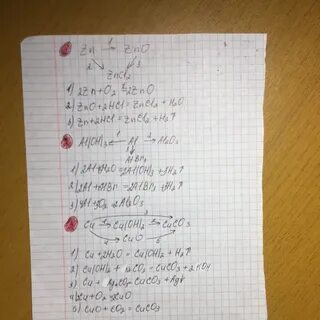 1 Zn →1 ZnO
2 3
ZnCl2
1) 2Zn+O2 = 2ZnO
2) ZnO+2HCl = ZnCl2 + H2O
3) Zn+2HCl = ZnCl2 + H2↑
2 Al(OH)3 ←1 Al →2 Al2O3
3
AlBr3
1) 2Al+6H2O = 2Al(OH)3 +3H2↑
2) 2Al + 6HBr = 2AlBr3 +3H2↑
3) 4Al+3O2 = 2Al2O3
Cu →1 Cu(OH)2 →2 CuCO3
CuO
1) Cu+2H2O = Cu(OH)2 + H2↑
2) Cu(OH)2 + K2CO3 = CuCO3 + 2KOH
3) Cu + Ag2CO3 = CuCO3 + Ag↓
4) Cu+O2 = CuO
5) CuO + CO2 = CuCO3